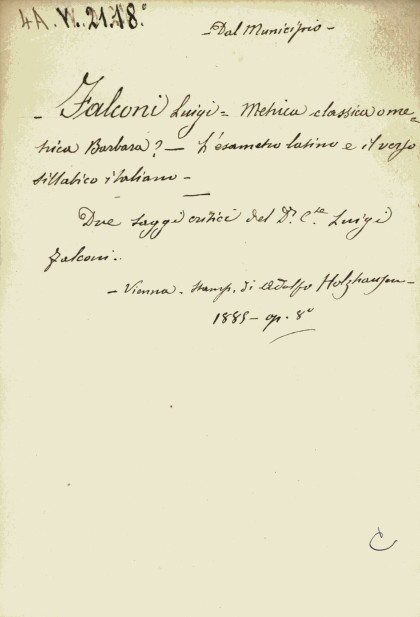 4A. VI. 21.18.
Dal Municipio -
- Falconi Luigi = Metrica classica o me=
trica Barbara? - L'esametro latino e il verso
sillabico italiano -
Due saggi critici del Dr. C.te Luigi
Falconi.
- Vienna - Stamp. di Adolfo Holzhausen -
1885 - op. 8°
C